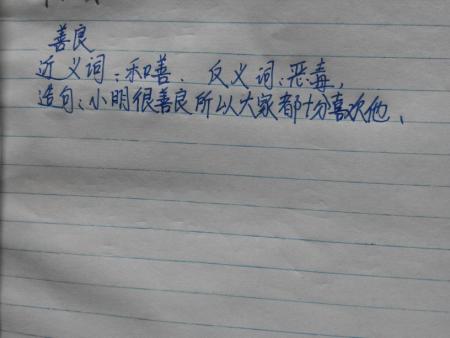 善良
近义词:和善. 反义词:恶毒,
造句:小明很善良所以大家都十分喜欢他、